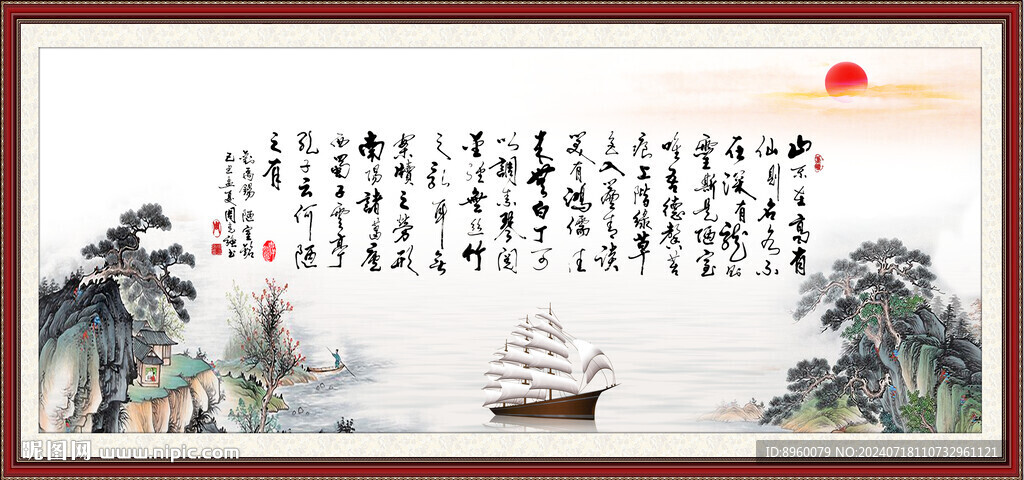 山不在高有
仙則名水不
在深有龍則
靈斯是陋室
唯吾德馨苔
痕上階綠草
色入簾青談
笑有鴻儒往
來無白丁可
以調素琴閱
金經無絲竹
之亂耳無
案牘之勞形
南陽諸葛廬
西蜀子雲亭
孔子云何陋
之有
劉禹錫 陋室銘
己丑孟夏周
昵图网 www.nipic.com
ID:8960079 NO:20240718110732961121